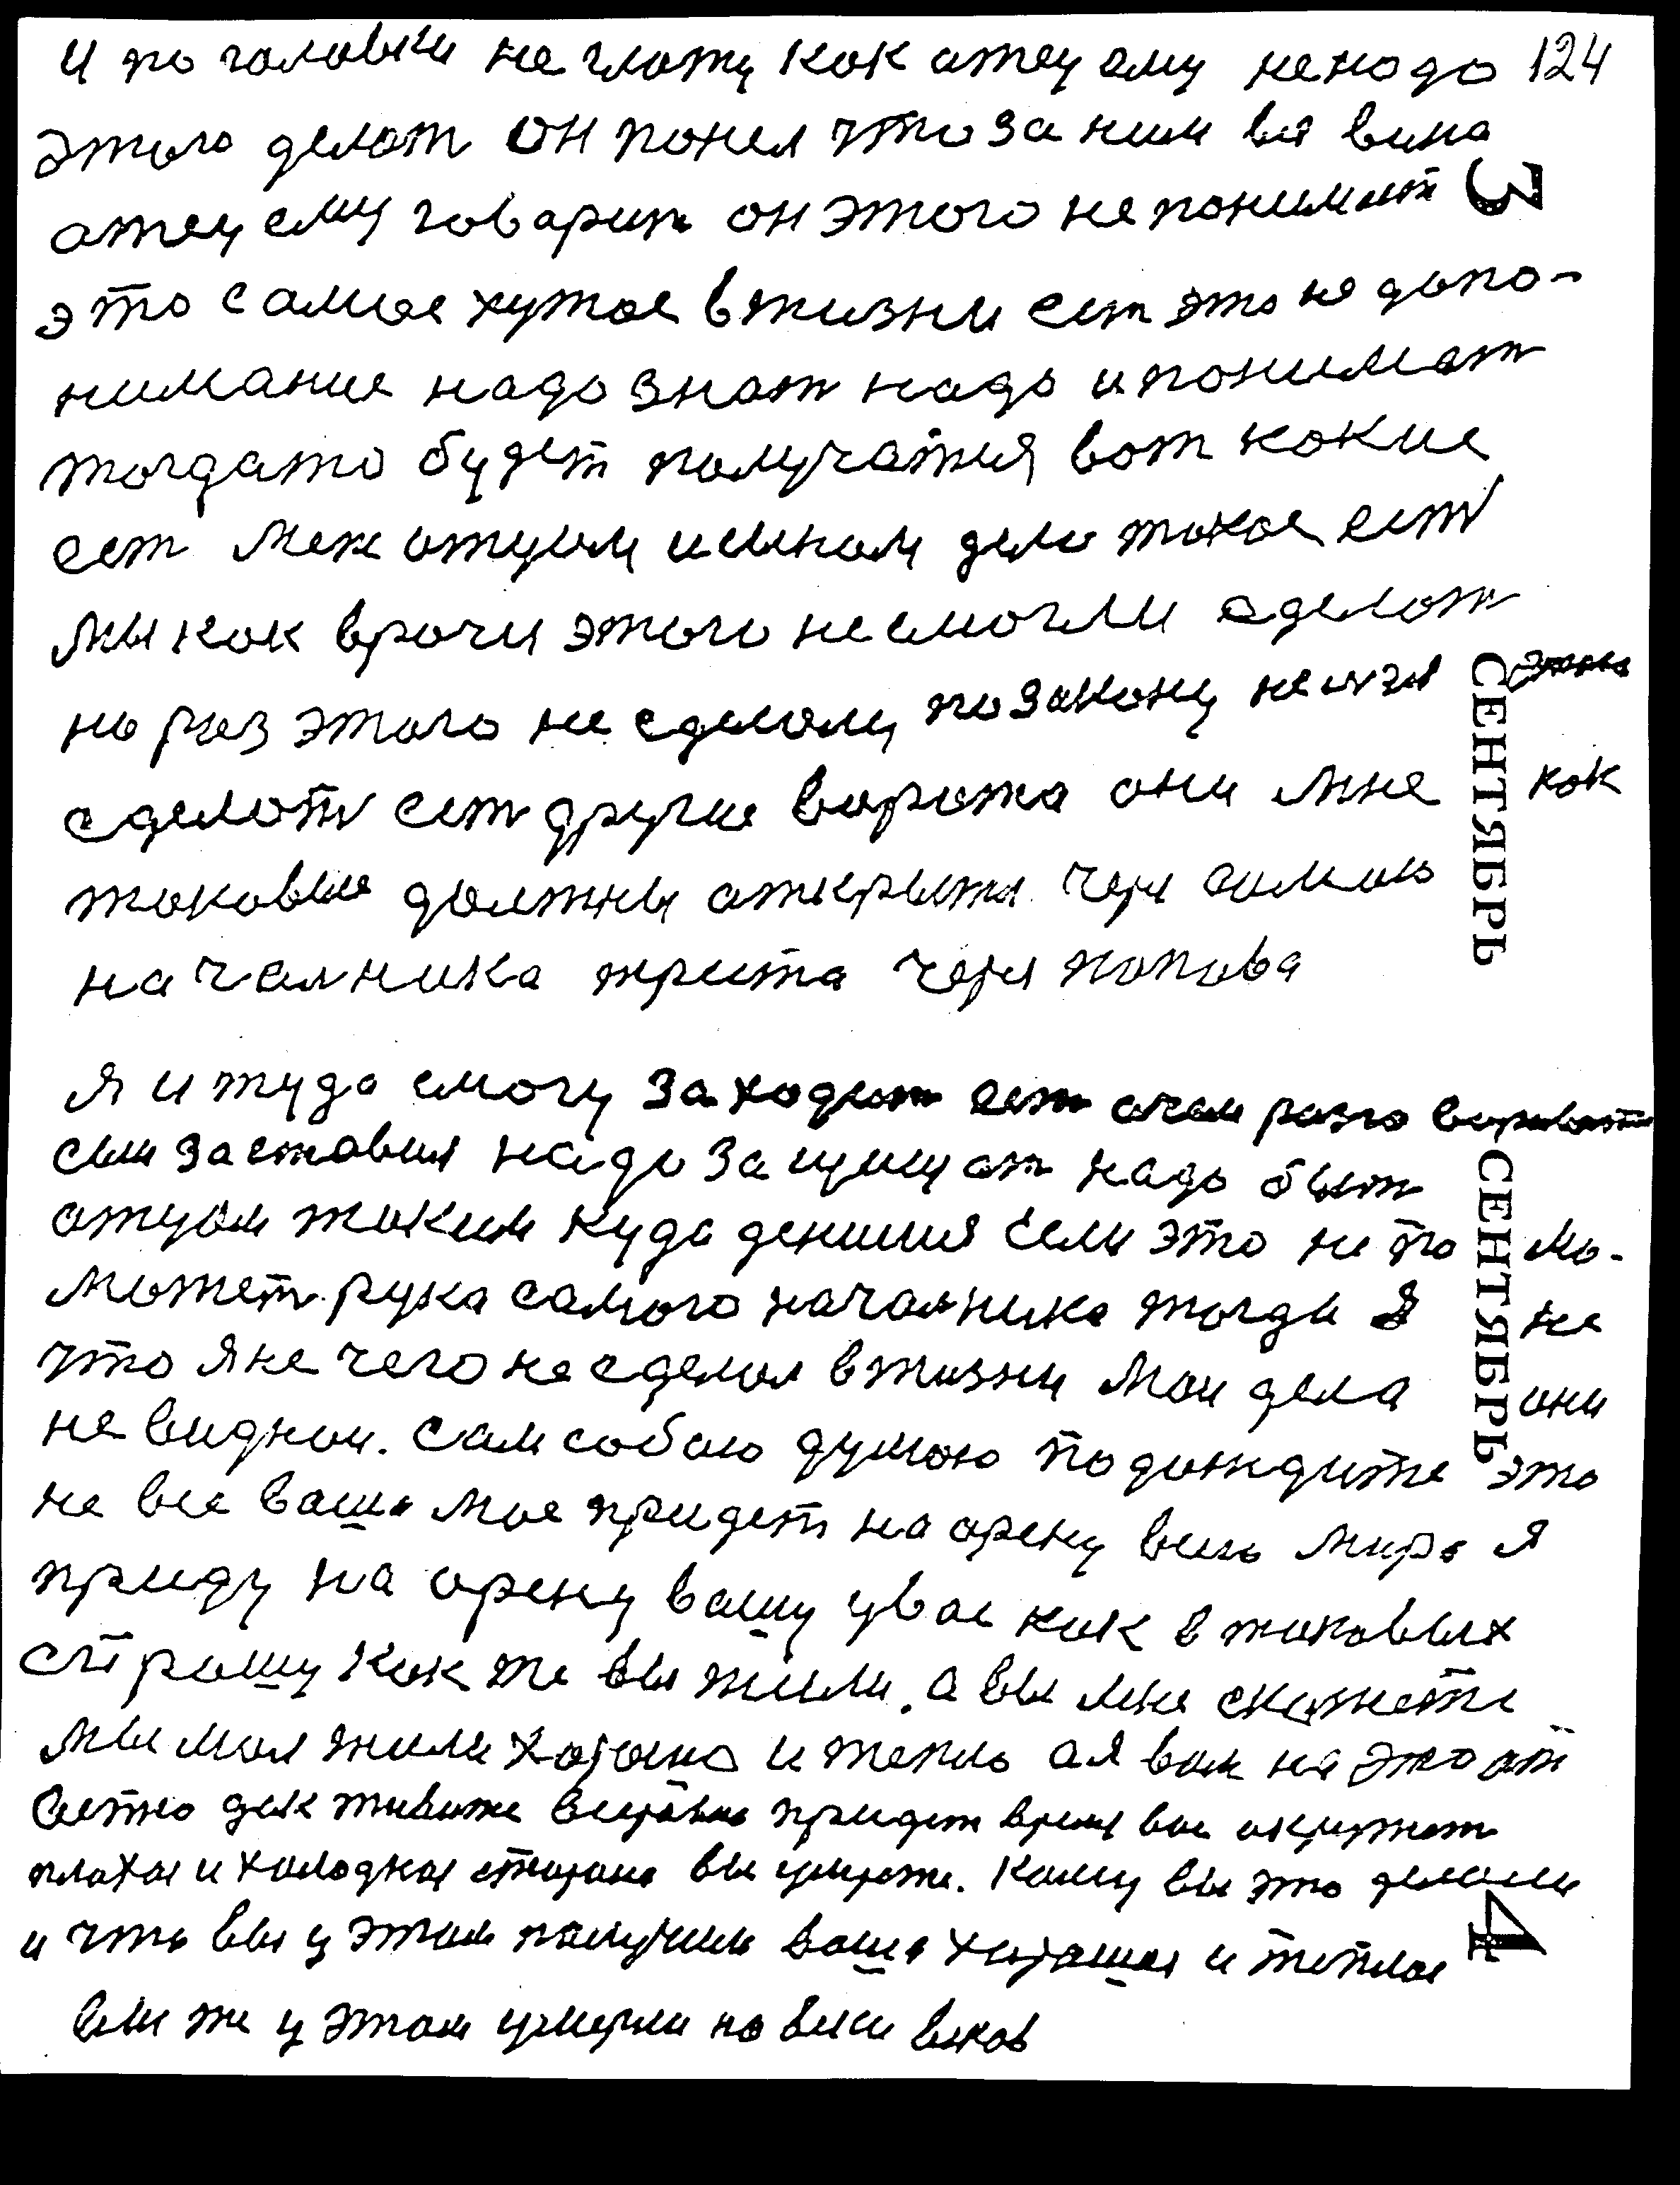 и по головки не глажу как атец ему не надо 124
этого делат он понел что за ним вся вина
атец ему говарит он этого не понимает 3
это самое хутое в жизни ест это не допо-
нимание надо знат надо и понимат
тогдато будет получатся вот какие
ест меж отцом и сыном дело такое есть
мы как врачи этого не смогли сделат
но раз этого не сделалц по закону нельзя
сделать ест другие варота они мне как
таковые должны аткрытся через самою
начална­ика треста через попова
я и туда смогу заходит ест о чем разговариват
сын заставил надо защищат надо быт
отцом таким куда денишся если это не по мо-
может рука самого началника тогда я не
что я не чего не сделал в жизни мои дела они
не виднои. сам собою думаю подождите это
не все ваша мое придет на арену висо мира я
приду на арену вашу у вас как в таковых
спрашу как же вы жили. а вы мне скажете
мы мол жили харашо и тепло а я вам на это ат
вечю дак живите всеравно придет время вас акружат
плахая и холодная старана вы умрете. Кому вы это делали
и что вы у этом получили ваша харашая и теплое 4
вы же у этом умерли на веки веков
СЕНТЯБРЬ
СЕНТЯБРЬ